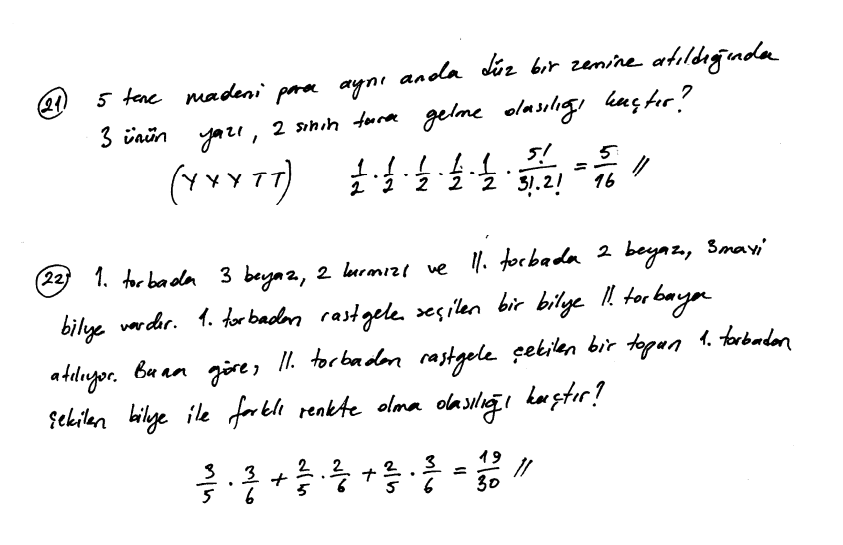 21) 5 tane madeni para aynı anda düz bir zemine atıldığında
3 ünün yazı, 2 sinin tura gelme olasılığı kaçtır?
(Y Y Y T T) 1/2 · 1/2 · 1/2 · 1/2 · 1/2 · 5!/3!.2! = 5/16 //
22) 1. torbada 3 beyaz, 2 kırmızı ve II. torbada 2 beyaz, 3 mavi
bilye vardır. 1. torbadan rastgele seçilen bir bilye II. torbaya
atılıyor. Buna göre, II. torbadan rastgele çekilen bir topun 1. torbadan
çekilen bilye ile farklı renkte olma olasılığı kaçtır?
3/5 · 3/6 + 2/5 · 2/6 + 2/5 · 3/6 = 19/30 //